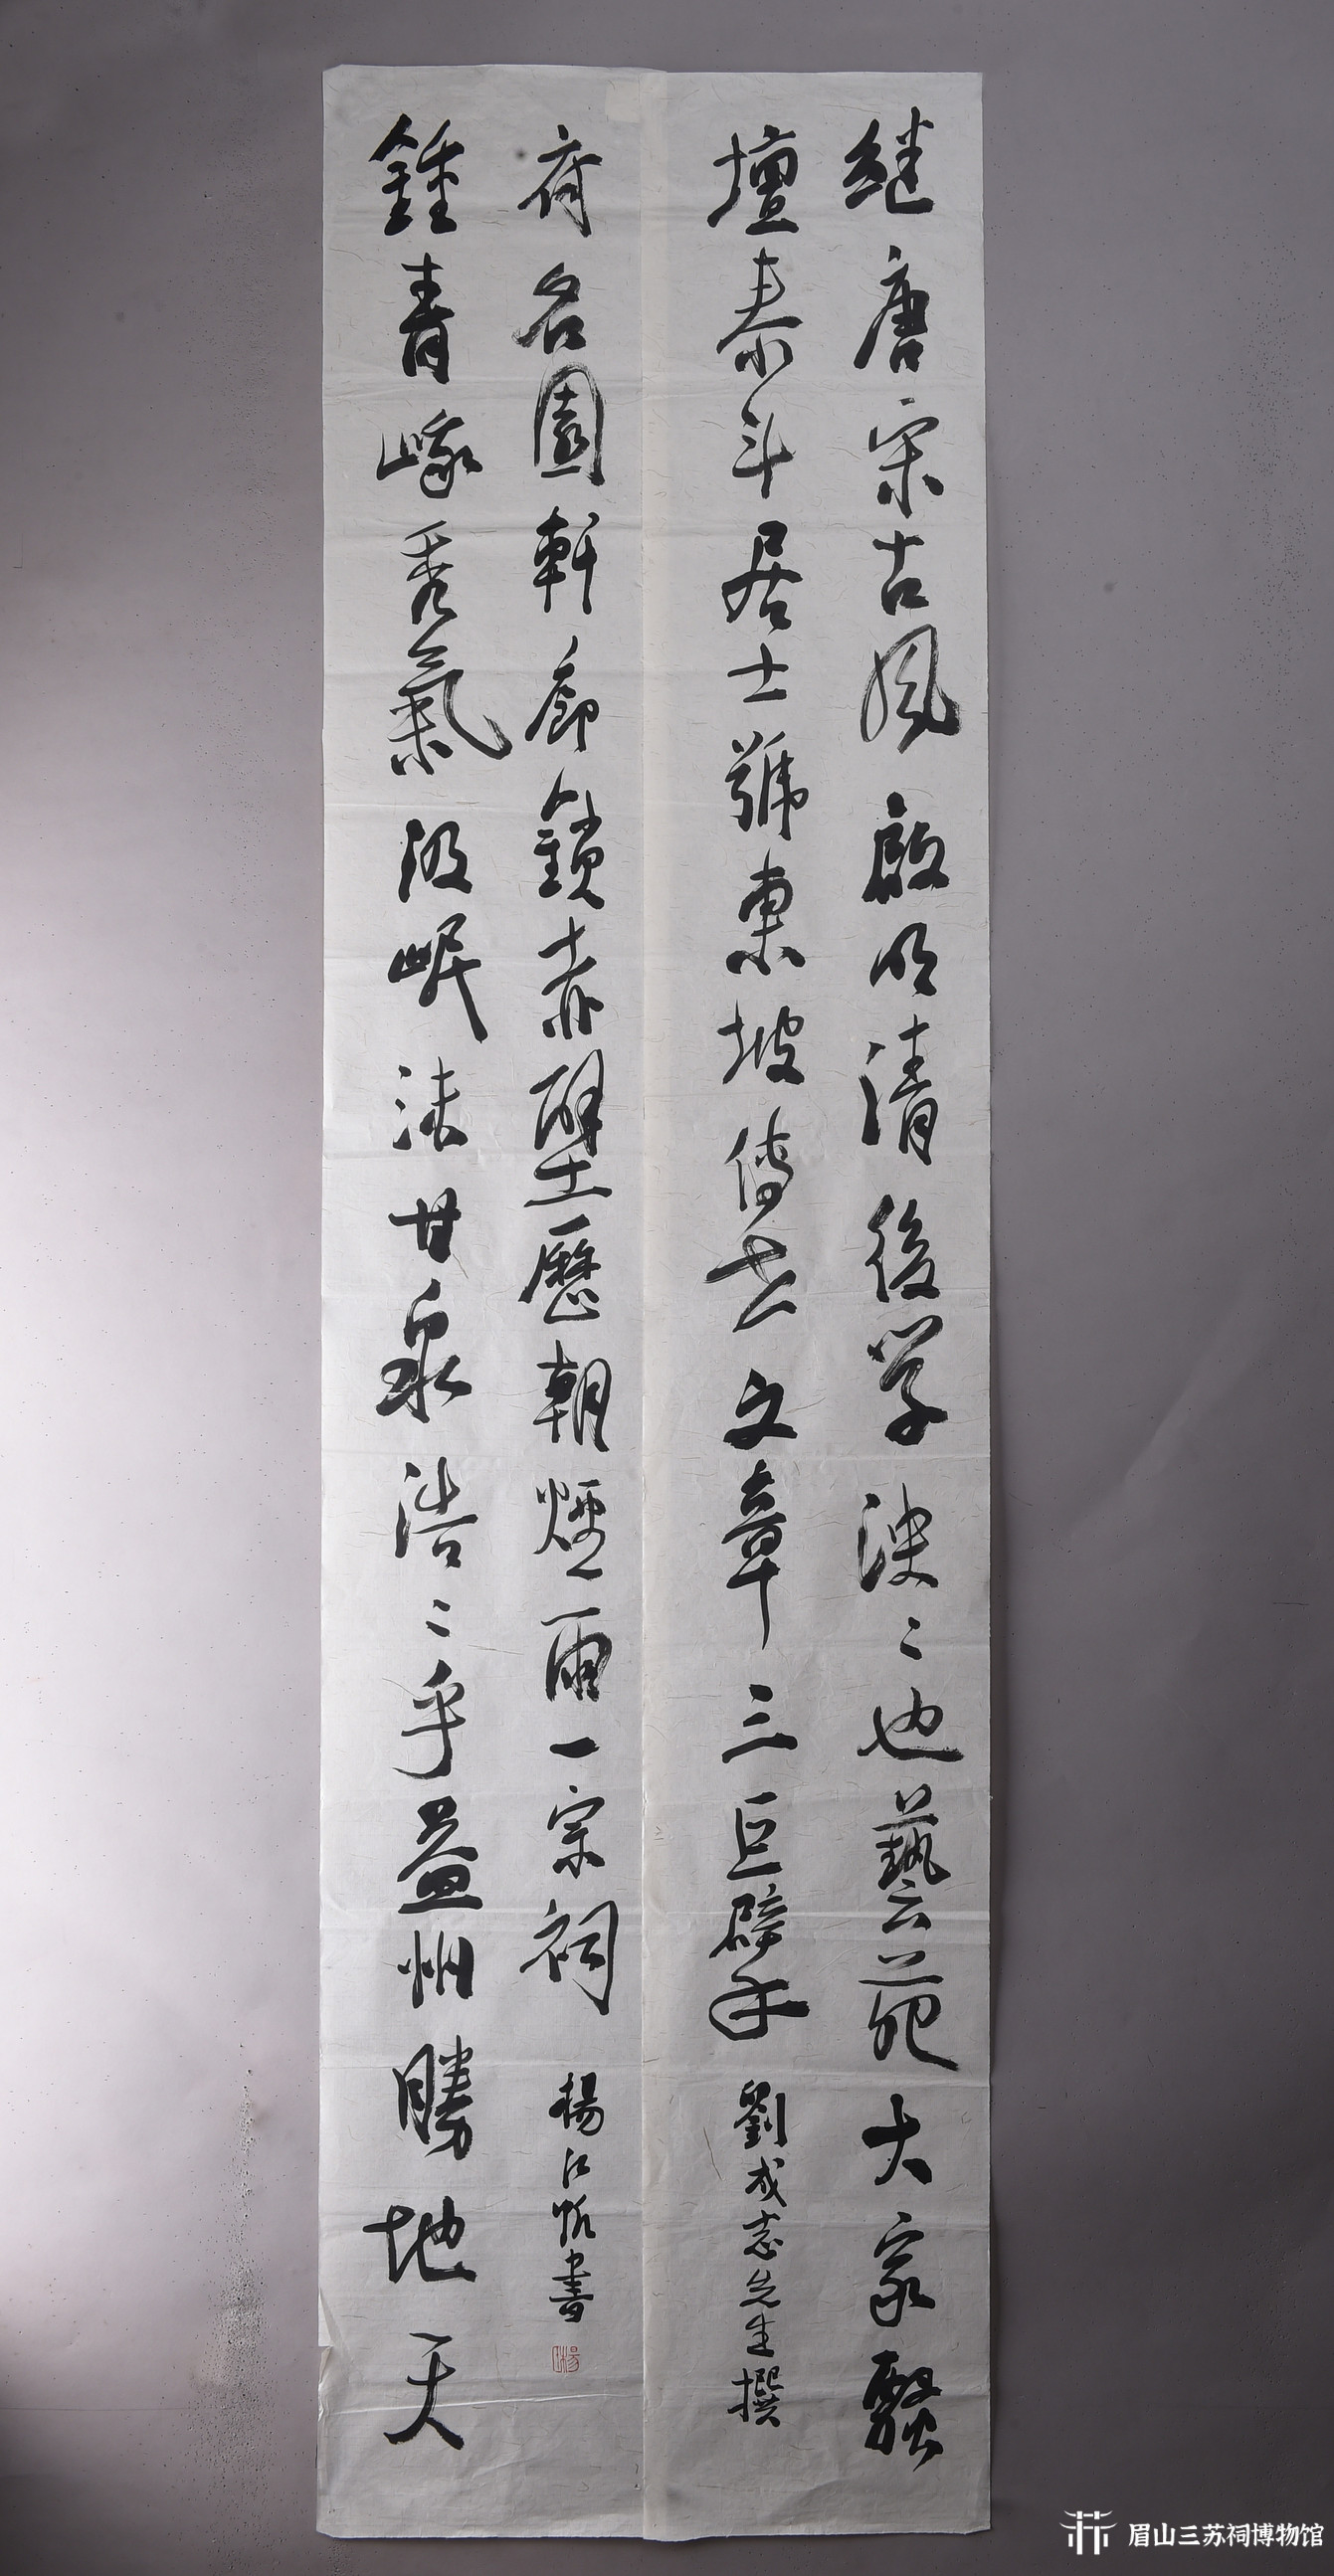 继唐宋古风啟明清後学泱〻也藝苑大家騷
壇泰斗居士號東坡傳世文章三巨擘
劉成志先生撰
鍾青峨秀氣汲岷沫甘泉浩〻乎益州勝地天
府名園軒廊鎖赤壁歷朝煙雨一宗祠
楊江帆書
眉山三苏祠博物馆